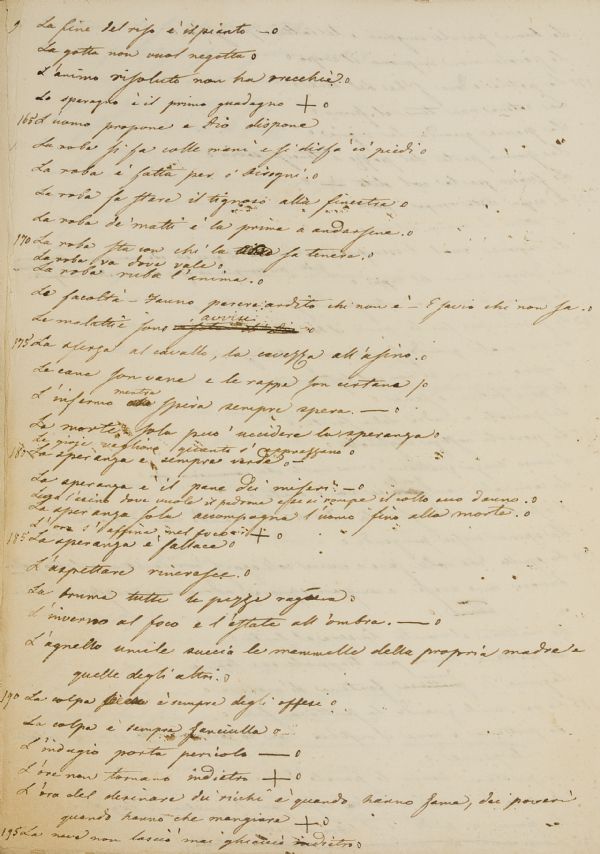 La fine del riso è il pianto — o
La gotta non vuol negotta o
L'animo risoluto non ha orecchie. o
Lo sparagno è il primo guadagno + o
165 L'uomo propone e Dio dispone
La roba si fa colle mani e si disfà co' piedi o
La roba è fatta per i bisogni. o
La roba fa stare il tignoso alla finestra o
La roba de' matti è la prima a andarsene. o
170 La roba sta con chi la sa tenere. o
La roba va dove vale. o
La roba ruba l'anima. o
Le facoltà – fanno parere ardito chi non è – E savio chi non sa. o
Le malattie sono avvisi o
175 La sferza al cavallo, la cavezza all'asino. o
Le cene son vane e le rappe son certane o
L'infermo mentre spira sempre spera. — o
La morte sola può uccidere la speranza o
Le gioje vagliono quanto s'apprezzano o
180 La speranza è sempre verde o
La speranza è il pane dei miseri — o
Lega l'asino dove vuole il padrone e se si rompe il collo suo danno. o
La speranza sola accompagna l'uomo fino alla morte. o
L'oro s'affina nel fuoco + o
185 La speranza è fallace o
L'aspettare rincresce. o
La bruma tutte le pezze raguna o
L'inverno al foco e l'estate all'ombra. — o
L'agnello umile succia le mammelle della propria madre e
quelle degli altri. o
190 La colpa è sempre degli offesi o
La colpa è sempre fanciulla o
L'indugio porta pericolo — o
L'ore non tornano indietro + o
L'ora del desinare dei ricchi è quando hanno fame, dei poveri
quando hanno che mangiare + o
195 La neve non lasciò mai ghiaccio indietro o